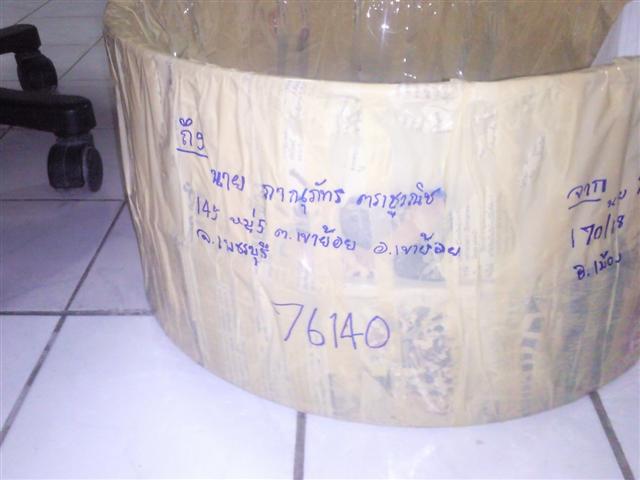 ถึง
นาย ภาณุภัทร ตราชูวณิช
145 หมู่5 ต.เขาย้อย อ.เขาย้อย
จ.เพชรบุรี
76140
จาก
170/18
อ.เมือง